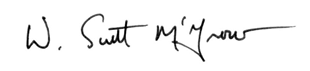 W. Scott McGraw